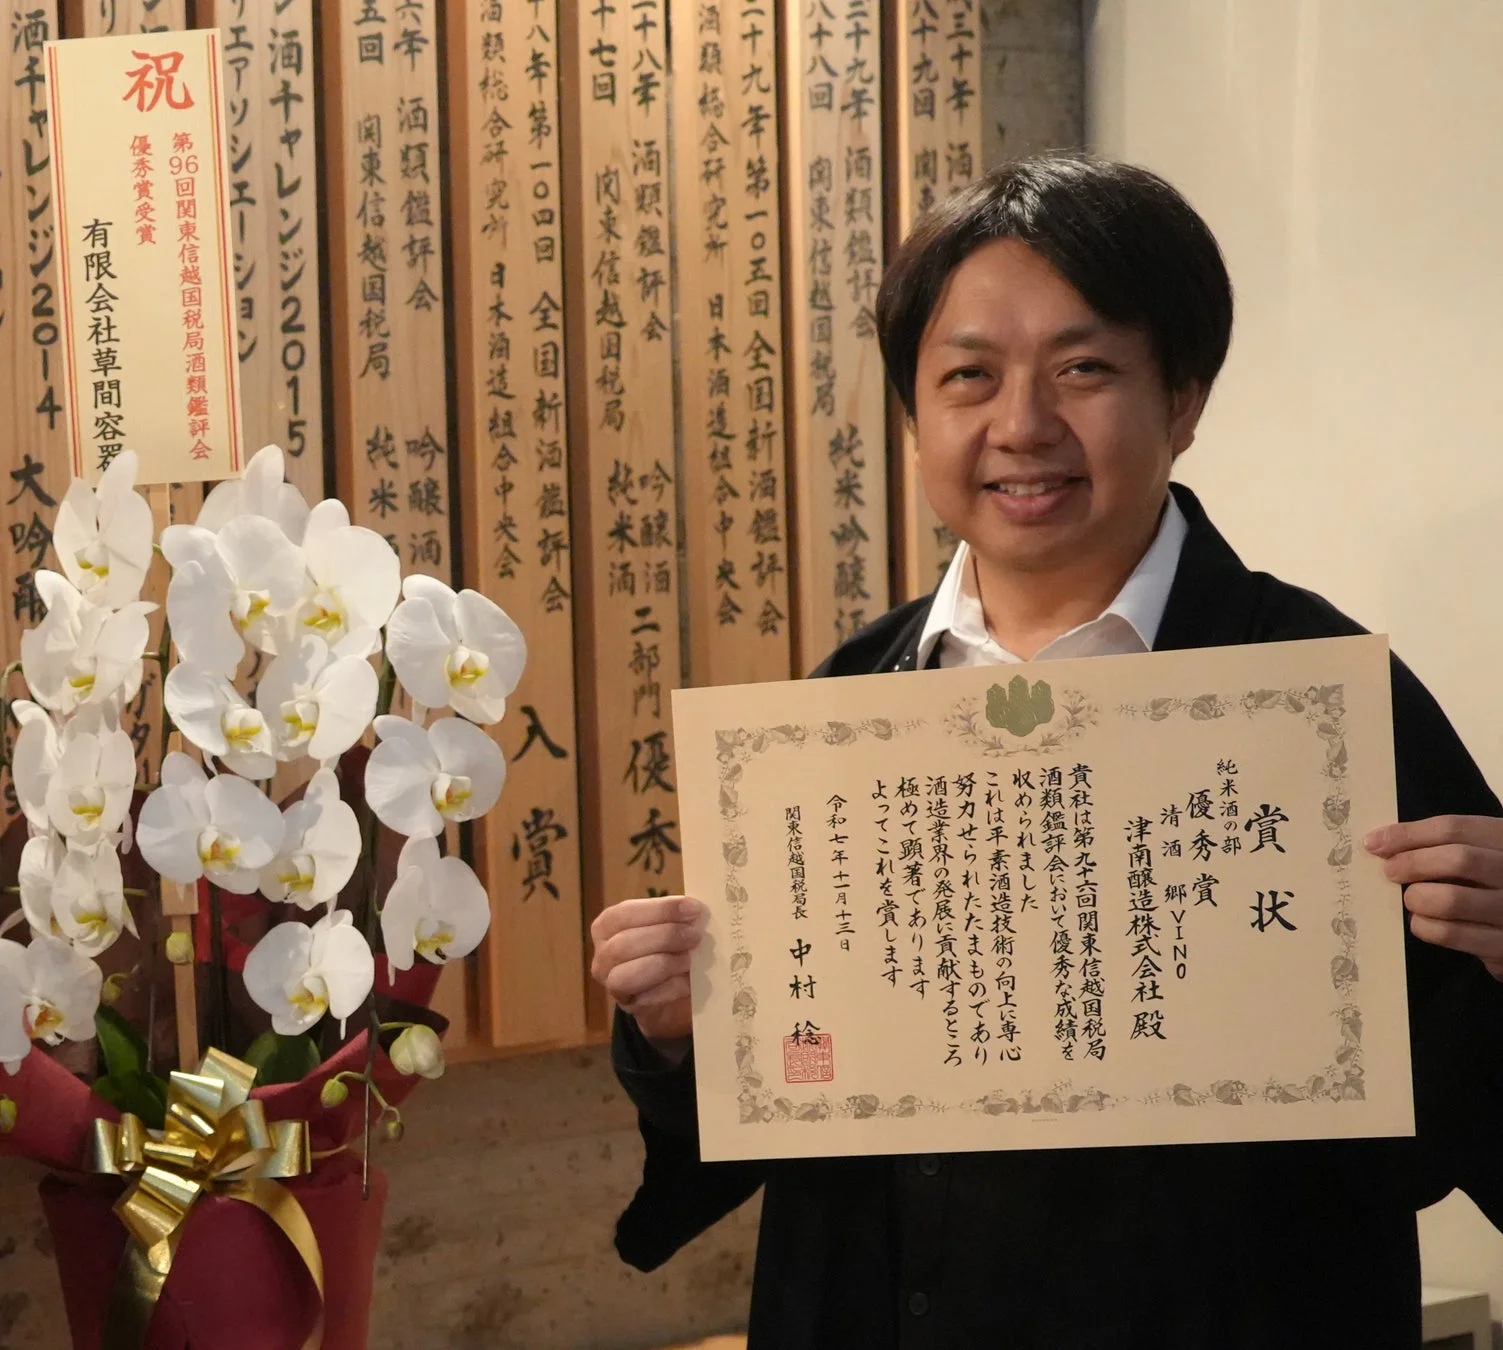 賞状
純米酒の部
優秀賞
清酒 郷VINO
津南醸造株式会社 殿
貴社は第九十六回関東信越国税局
酒類鑑評会において優秀な成績を
収められました
これは平素酒造技術の向上に専心
努力せられたたまものであり
酒造業界の発展に貢献するところ
極めて顕著であります
よってこれを賞します
令和七年十一月十三日
関東信越国税局長 中村 稔
祝
第96回関東信越国税局酒類鑑評会
優秀賞受賞
有限会社草間容器
三十年 酒
十九回 関東
二十九年 酒類鑑評会
八十八回 関東信越国税局 純米吟醸酒
二十九年第一〇五回 全国新酒鑑評会
酒類総合研究所 日本酒造組合中央会
二十八年 酒類鑑評会 吟醸酒 二部門 優秀
十七回 関東信越国税局 純米酒
十八年第一〇四回 全国新酒鑑評会 入賞
酒類総合研究所 日本酒造組合中央会
六年 酒類鑑評会 吟醸酒
五回 関東信越国税局 純米酒
酒チャレンジ2015
エアソシエーション
酒チャレンジ2014 大吟醸